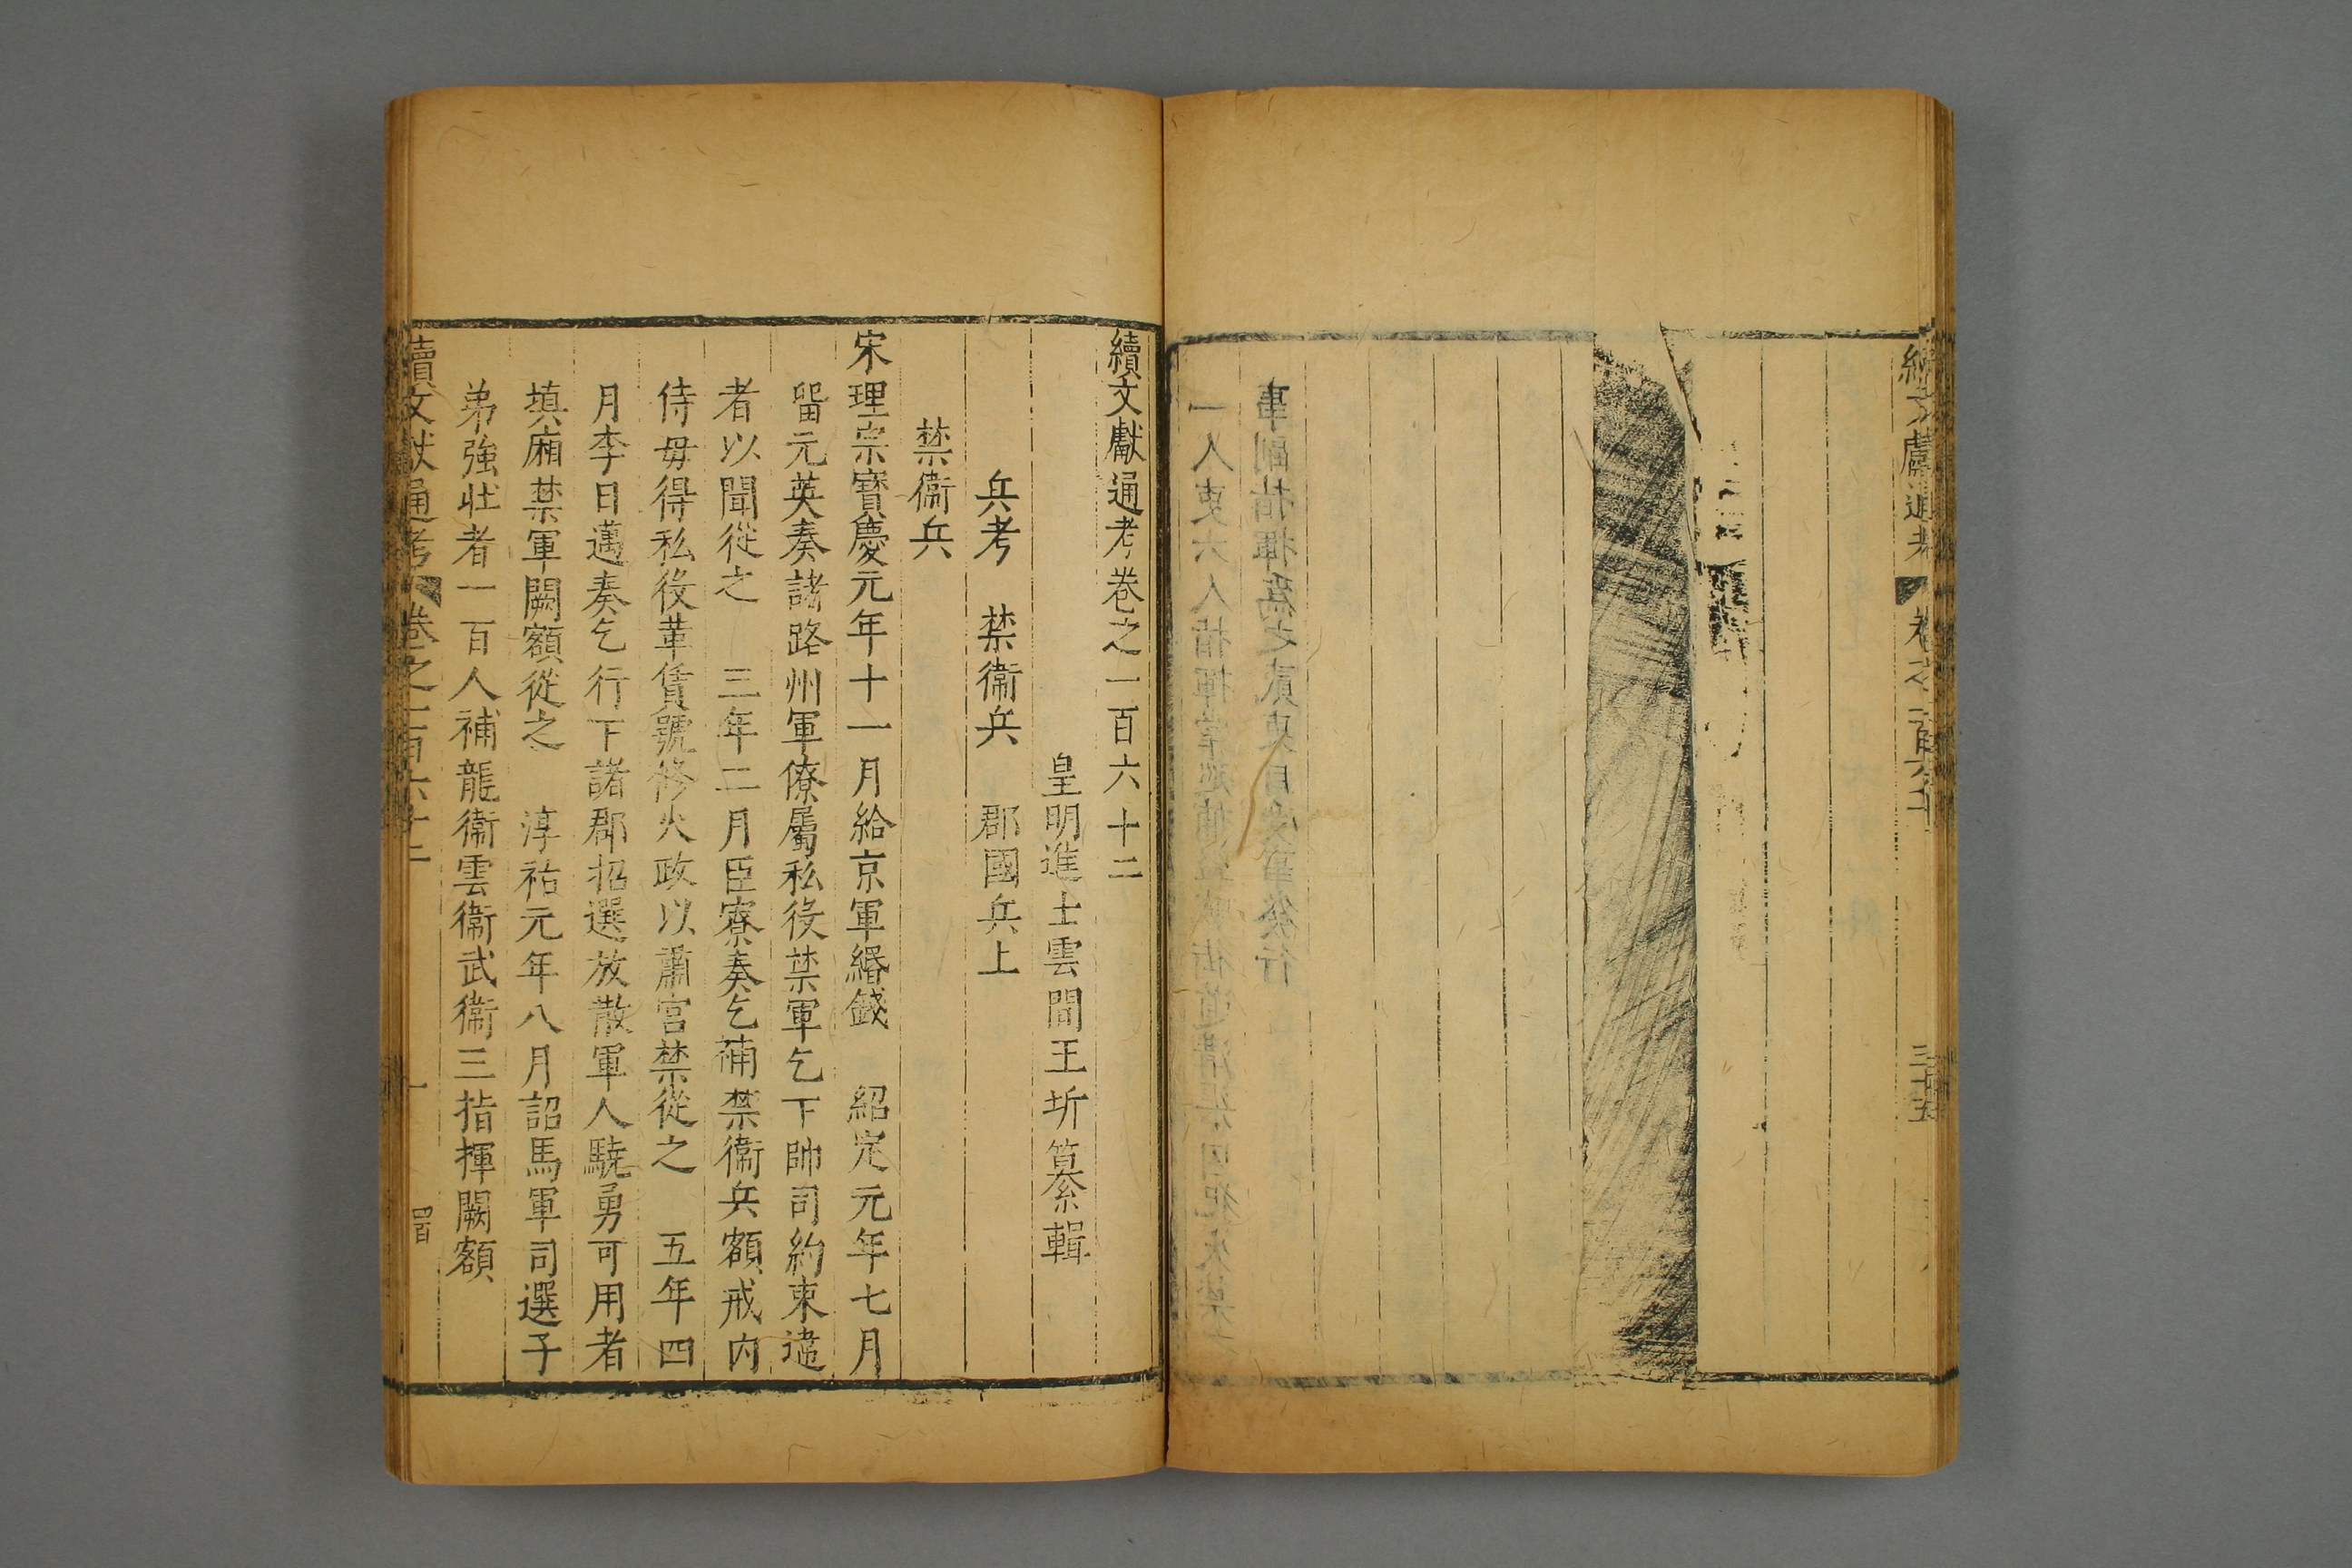 續文獻通考卷之一百六十二
皇明進士雲間王圻纂輯
兵考　禁衞兵　郡國兵上
禁衞兵
宋理宗寳慶元年十一月給京軍緡錢　紹定元年七月
留元英奏諸路州軍僚屬私役禁軍乞下帥司約束違
者以聞從之　三年二月臣寮奏乞補禁衞兵額戒内
侍毋得私役革賃號修火政以肅宫禁從之　五年四
月李日邁奏乞行下諸郡招選放散軍人驍勇可用者
填廂禁軍闕額從之　淳祐元年八月詔馬軍司選子
弟強壮者一百人補龍衞雲衞武衞三指揮闕額
續文獻通考　卷之一百六十二　一